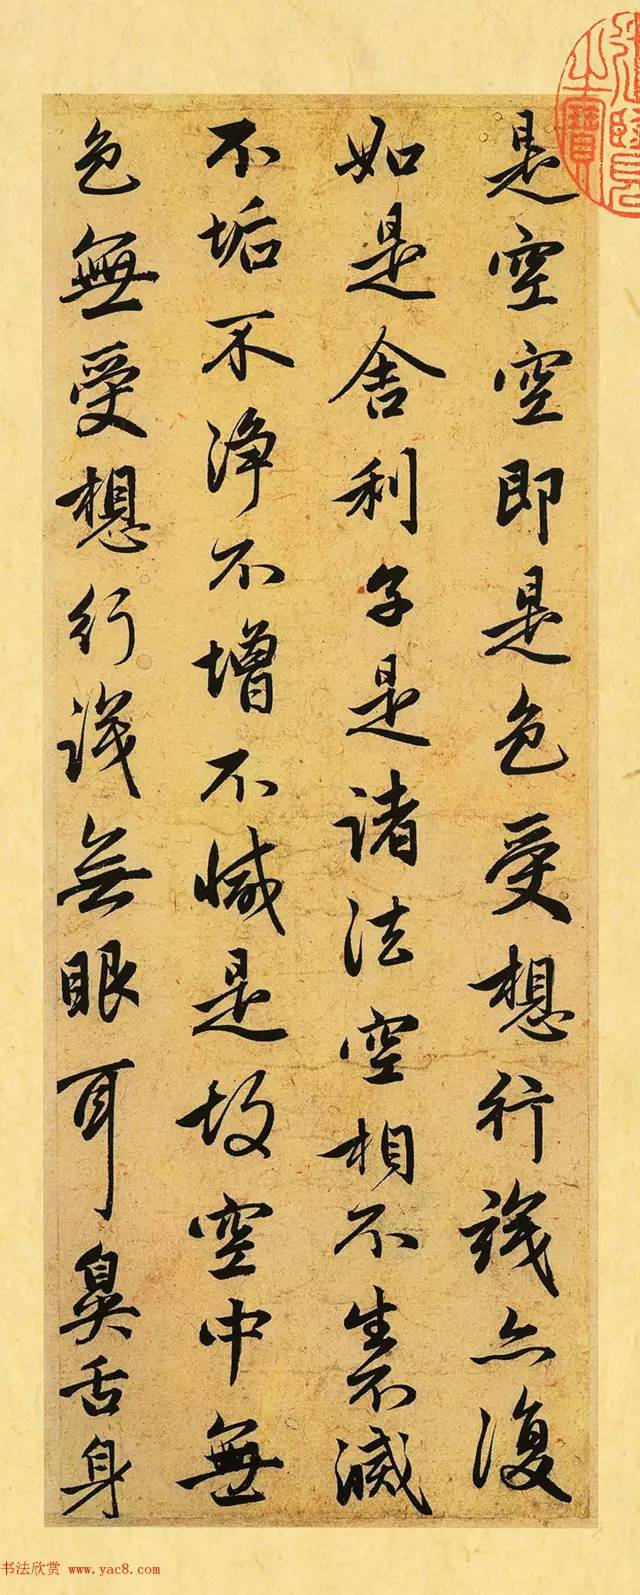 是空空即是色受想行識亦復
如是舍利子是諸法空相不生不滅
不垢不淨不增不減是故空中無
色無受想行識無眼耳鼻舌身
之寶
书法欣赏 www.yac8.com